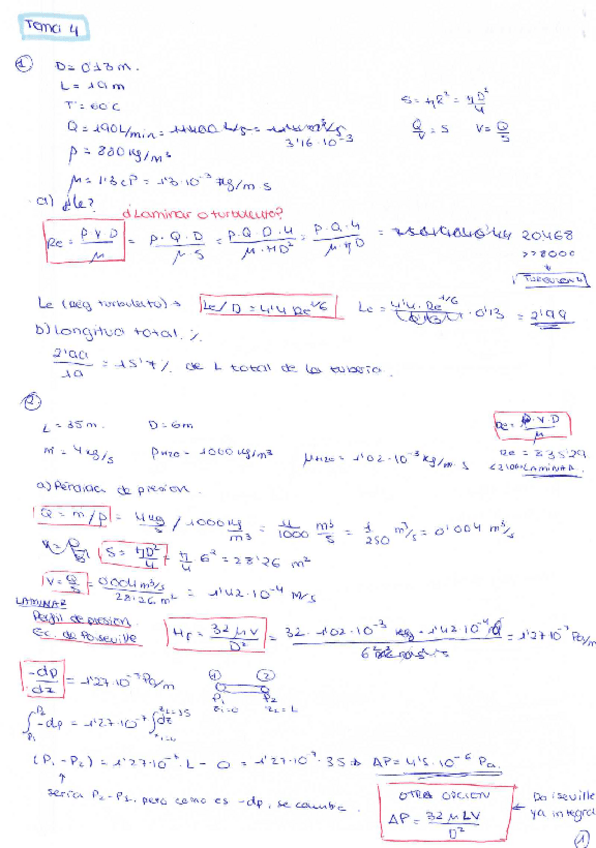 Tema 4
① D = 0'13 m.
L = 19 m
T = 60 C
Q = 190 L/min = 3'16·10⁻³
ρ = 880 kg/m³
μ = 1'3 cP = 1'3·10⁻³ kg/m s
S = πR² = πD²/4
Q/V = S V = Q/S
a) ¿Le?
¿Laminar o turbulento?
Re = ρ V D/μ = ρ·Q·D/μ·S = ρ·Q·D·4/μ·πD² = ρ·Q·4/μ·πD = 20468
>>8000
↓
TURBULENTO
Le (reg turbulento) → Le/D = 4'4 Re^1/6 Le = 4'4·Re^1/6 · 0'13 = 2'99
b) Longitud total %
2'99/19 = 15'7% de L total de la tubería.
②
L = 35 m. D = 6 m
ṁ = 4 kg/s ρH2O = 1000 kg/m³ μH2O = 1'02·10⁻³ kg/m·s
Re = ρ·V·D/μ
Re = 835'29
<2100 LAMINAR
a) Pérdida de presion.
Q = m/ρ = 4 kg/s / 1000 kg/m³ = 4/1000 m³/s = 1/250 m³/s = 0'004 m³/s
S = πD²/4 = π/4 6² = 28'26 m²
V = Q/S = 0'004 m³/s / 28'26 m² = 1'42·10⁻⁴ m/s
LAMINAR
Perfil de presion
Ec. de Poiseville
Hf = 32 μV/D² = 32·1'02·10⁻³ kg·1'42·10⁻⁴ / 6² = 1'27·10⁻⁷ Pa/m
-dp/dz = 1'27·10⁻⁷ Pa/m
① ②
P1 P2
z1=0 z2=L
∫P1 P2 -dp = 1'27·10⁻⁷ ∫z1=0 z2=35 dz
(P1 - P2) = 1'27·10⁻⁷·L - 0 = 1'27·10⁻⁷·35 → ΔP = 4'5·10⁻⁶ Pa.
↑
sería P2-P1, pero como es -dp, se cambia.
OTRA OPCION
ΔP = 32 μLV/D²
← Poiseville
ya integra
①